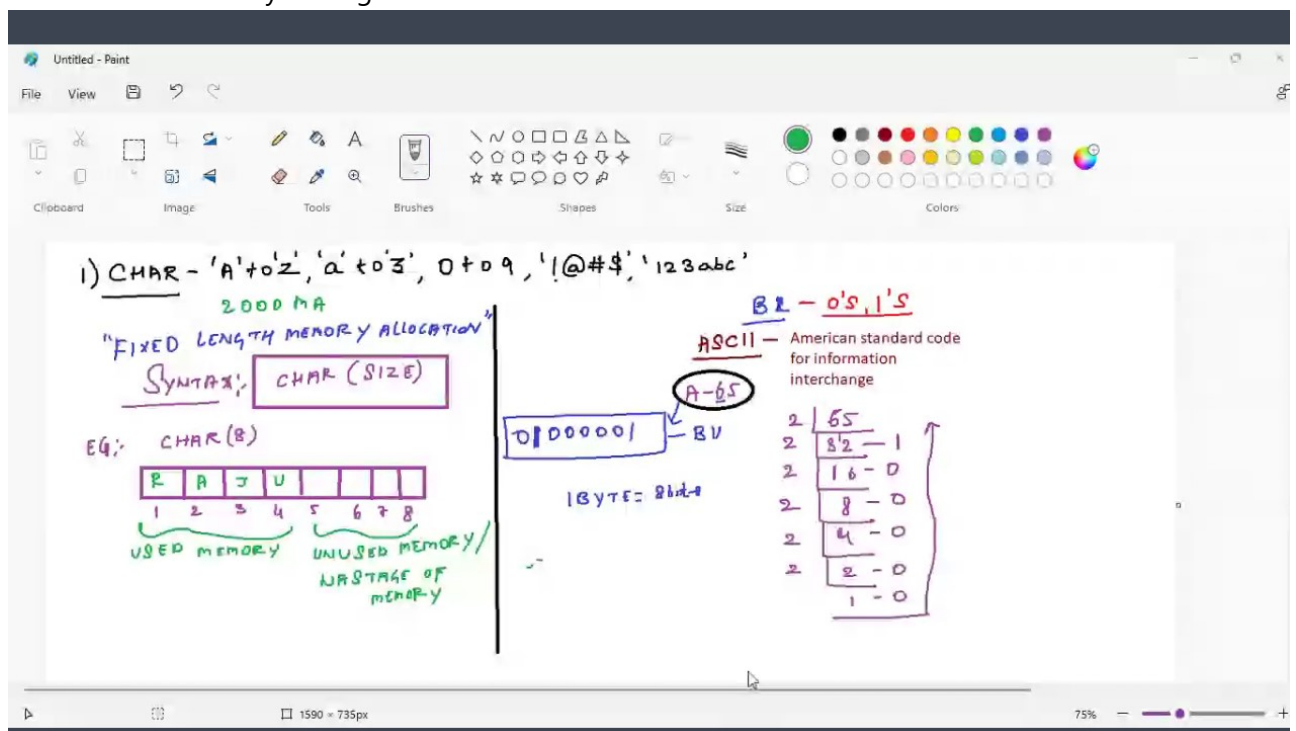 Untitled - Paint
File View
Clipboard Image Tools Brushes Shapes Size Colors
1) CHAR - 'A' to 'Z', 'a' to 'z', 0 to 9, '!@#$', '123abc'
2000 MA
"FIXED LENGTH MEMORY ALLOCATION"
SYNTAX: CHAR (SIZE)
EG: CHAR (8)
R A J U
1 2 3 4 5 6 7 8
USED MEMORY
UNUSED MEMORY/
WASTAGE OF
MEMORY
- 0's, 1's
ASCII - American standard code
for information
interchange
A-65
01000001 - BV
1BYTE = 8bits
2 65
2 32 - 1
2 16 - 0
2 8 - 0
2 4 - 0
2 2 - 0
1 - 0
1590 × 735px
75%